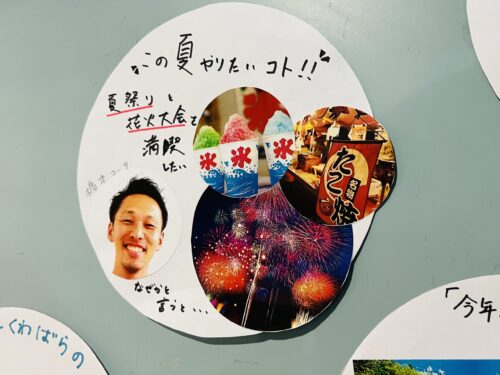 この夏やりたいコト!!
夏祭りと
花火大会を
満喫
したい
氷
氷
氷
名物
たこ焼
コーチ
なぜかと
言うと・・・
くわばらの
「今年